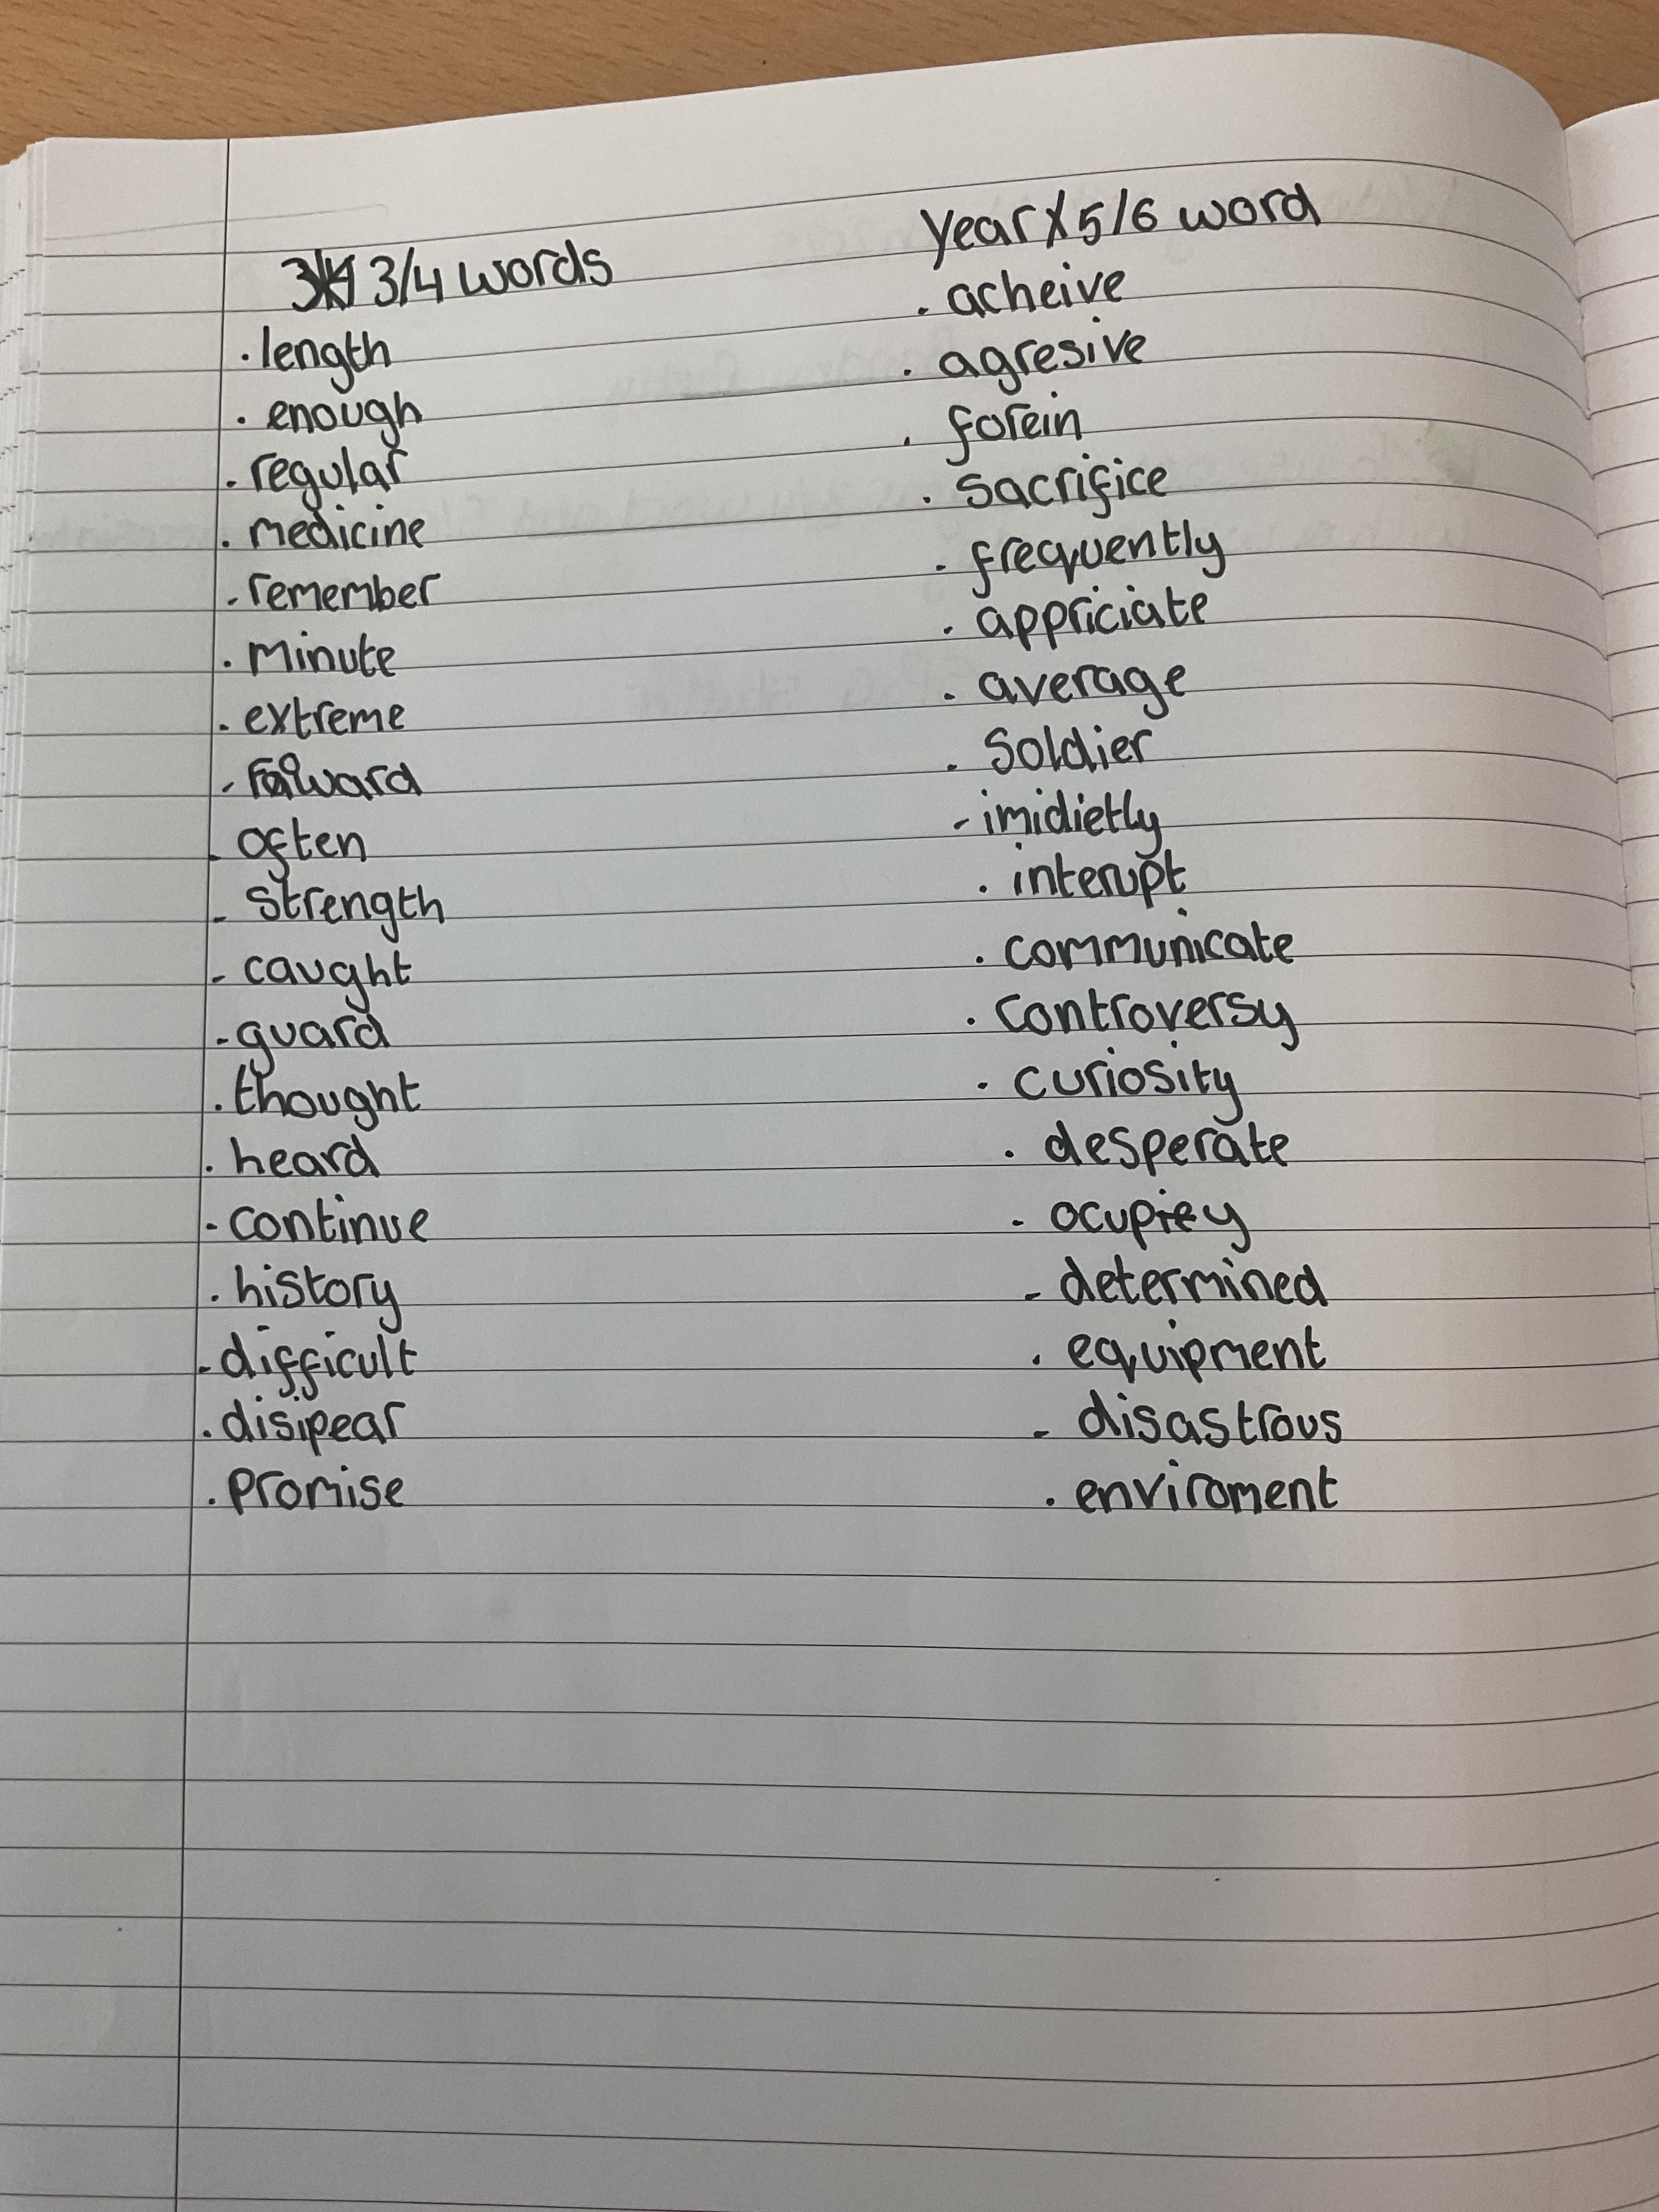 3/4 words
length
enough
regular
medicine
remember
minute
extreme
forward
often
strength
caught
guard
thought
heard
continue
history
difficult
disipear
promise
year 5/6 word
acheive
agresive
forein
sacrifice
frequently
appriciate
average
soldier
imidietly
interupt
communicate
controversy
curiosity
desperate
ocupy
determined
equipment
disastrous
enviroment